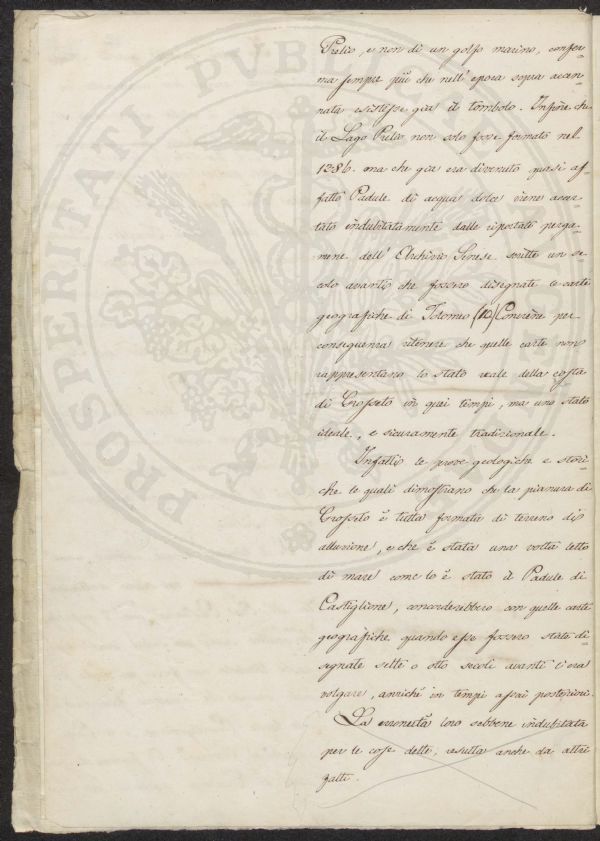 Prelio, e non di un golfo marino, confer-
ma sempre più che nell'epoca sopra accen-
nata esistesse già il tombolo. Infine che
il Lago Prelio non solo fosse formato nel
1386. ma che già era divenuto quasi af-
fatto Padule di acqua dolce viene accer-
tato indubitatamente dalle riportate perga-
mene dell'Archivio Senese scritte un se-
colo avanti che fossero disegnate le carte
geografiche di Tolomeo (10) Conviene per
conseguenza ritenere che quelle carte non
rappresentano lo stato reale della costa
di Grosseto in quei tempi, ma uno stato
ideale, e sicuramente tradizionale.
Infatti le prove geologiche e stori-
che le quali dimostrano che la pianura di
Grosseto è tutta formata di terreno di
alluvione, e che è stata una volta letto
di mare come lo è stato il Padule di
Castiglione, concorderebbero con quelle carte
geografiche quando esse fossero state di-
segnate sette o otto secoli avanti l'era
volgare, anziché in tempi assai posteriori.
La erroneità loro sebbene indubitata
per le cose dette, resulta anche da altri
fatti.
PROSPERITATI PVBLI